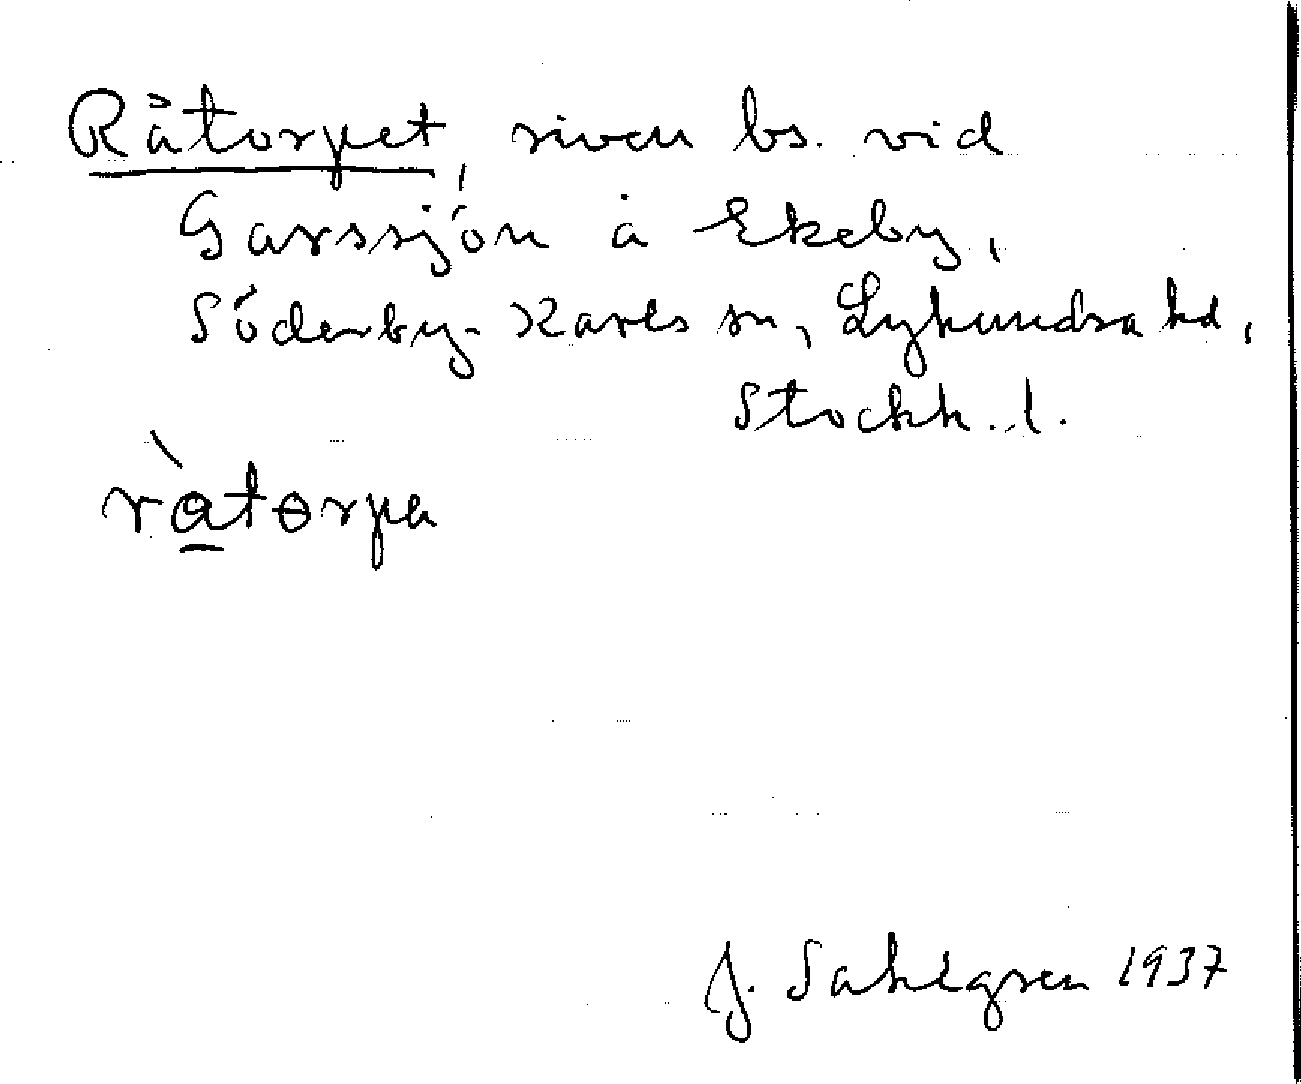 Råtorpet, riven bs. vid
Garssjön å Ekeby,
Söderby-Karls sn, Lyhundra hd,
Stockh. l.
rà̱tɵrpa
J. Sahlgren 1937